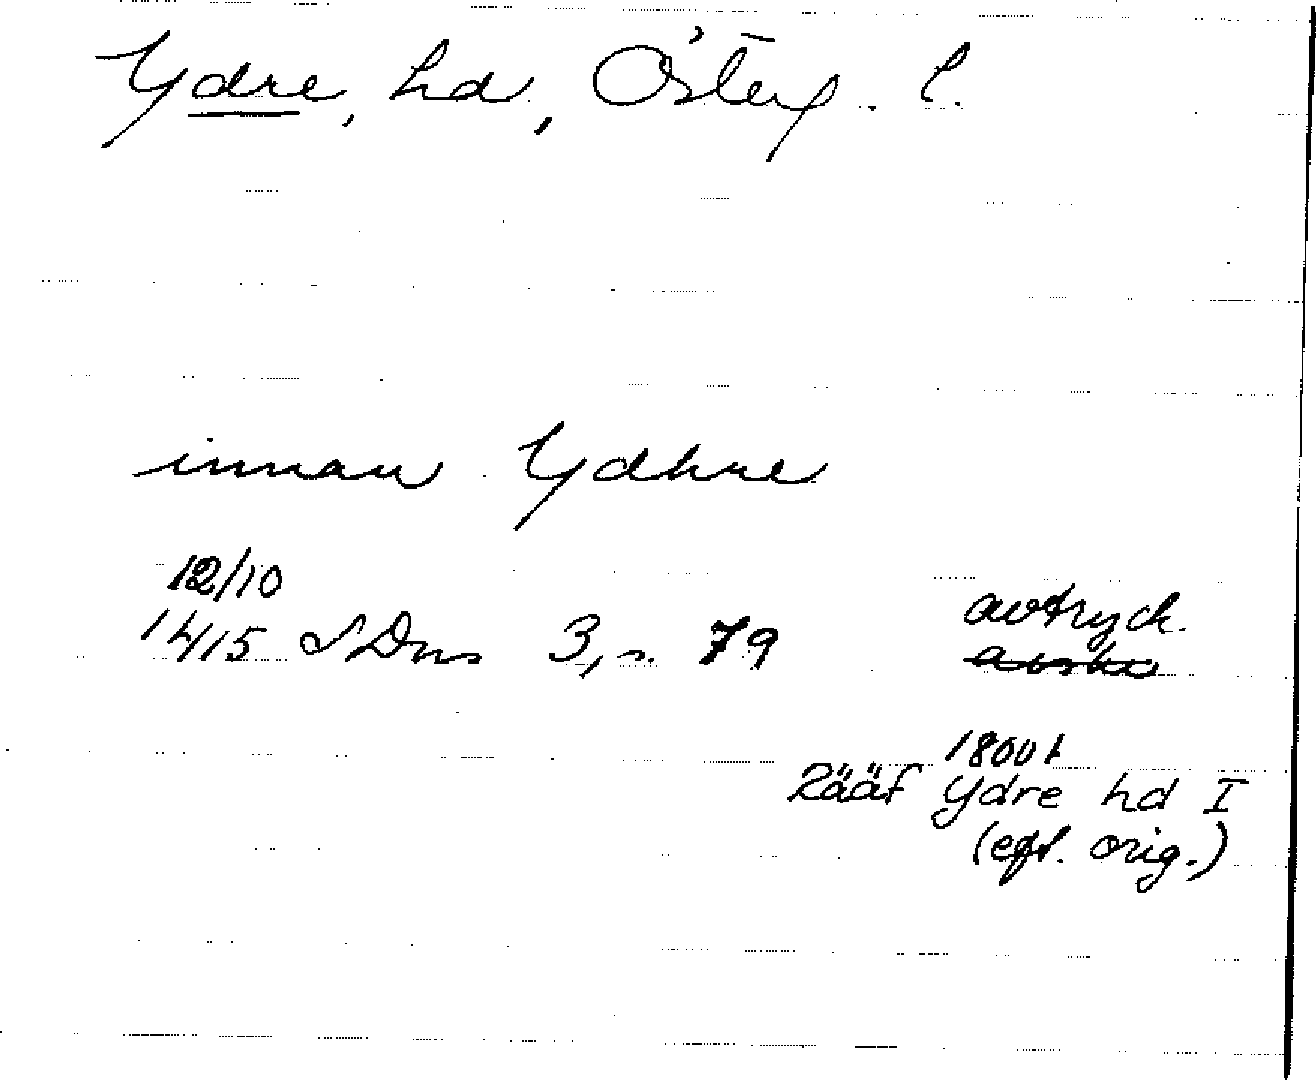 Ydre, hd, Österg. l.
innan Ydhre
12/10
1415 SDns 3, s. 79
avtryck.
avskr
1800 t
Rääf Ydre hd I
(eft. orig.)